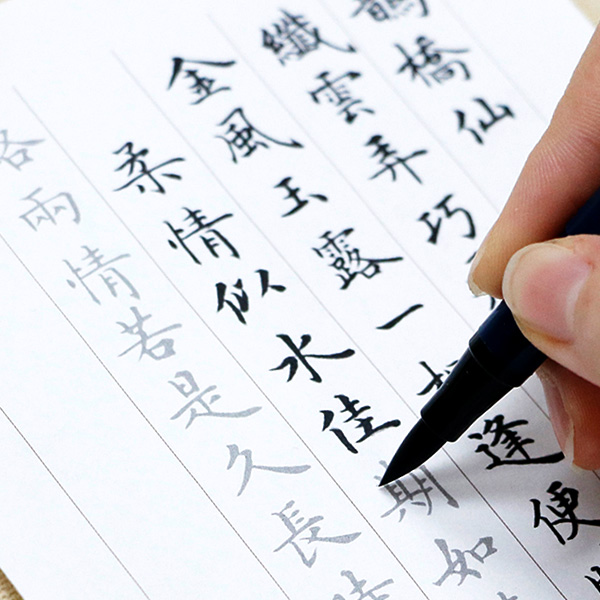 鵲橋仙
纖雲弄巧
金風玉露一逢便
柔情似水佳期如
兩情若是久長時